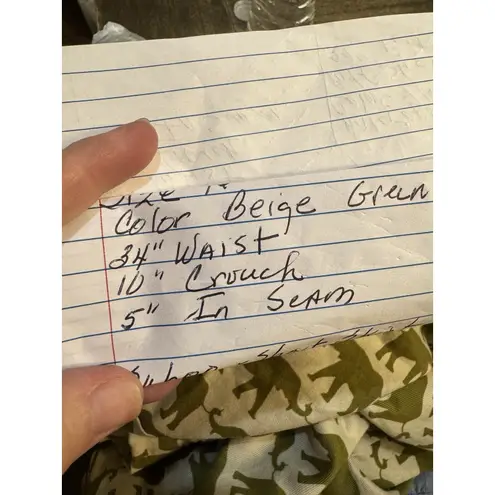 Size
Color Beige Green
34" Waist
10" Crouch
5" In Seam